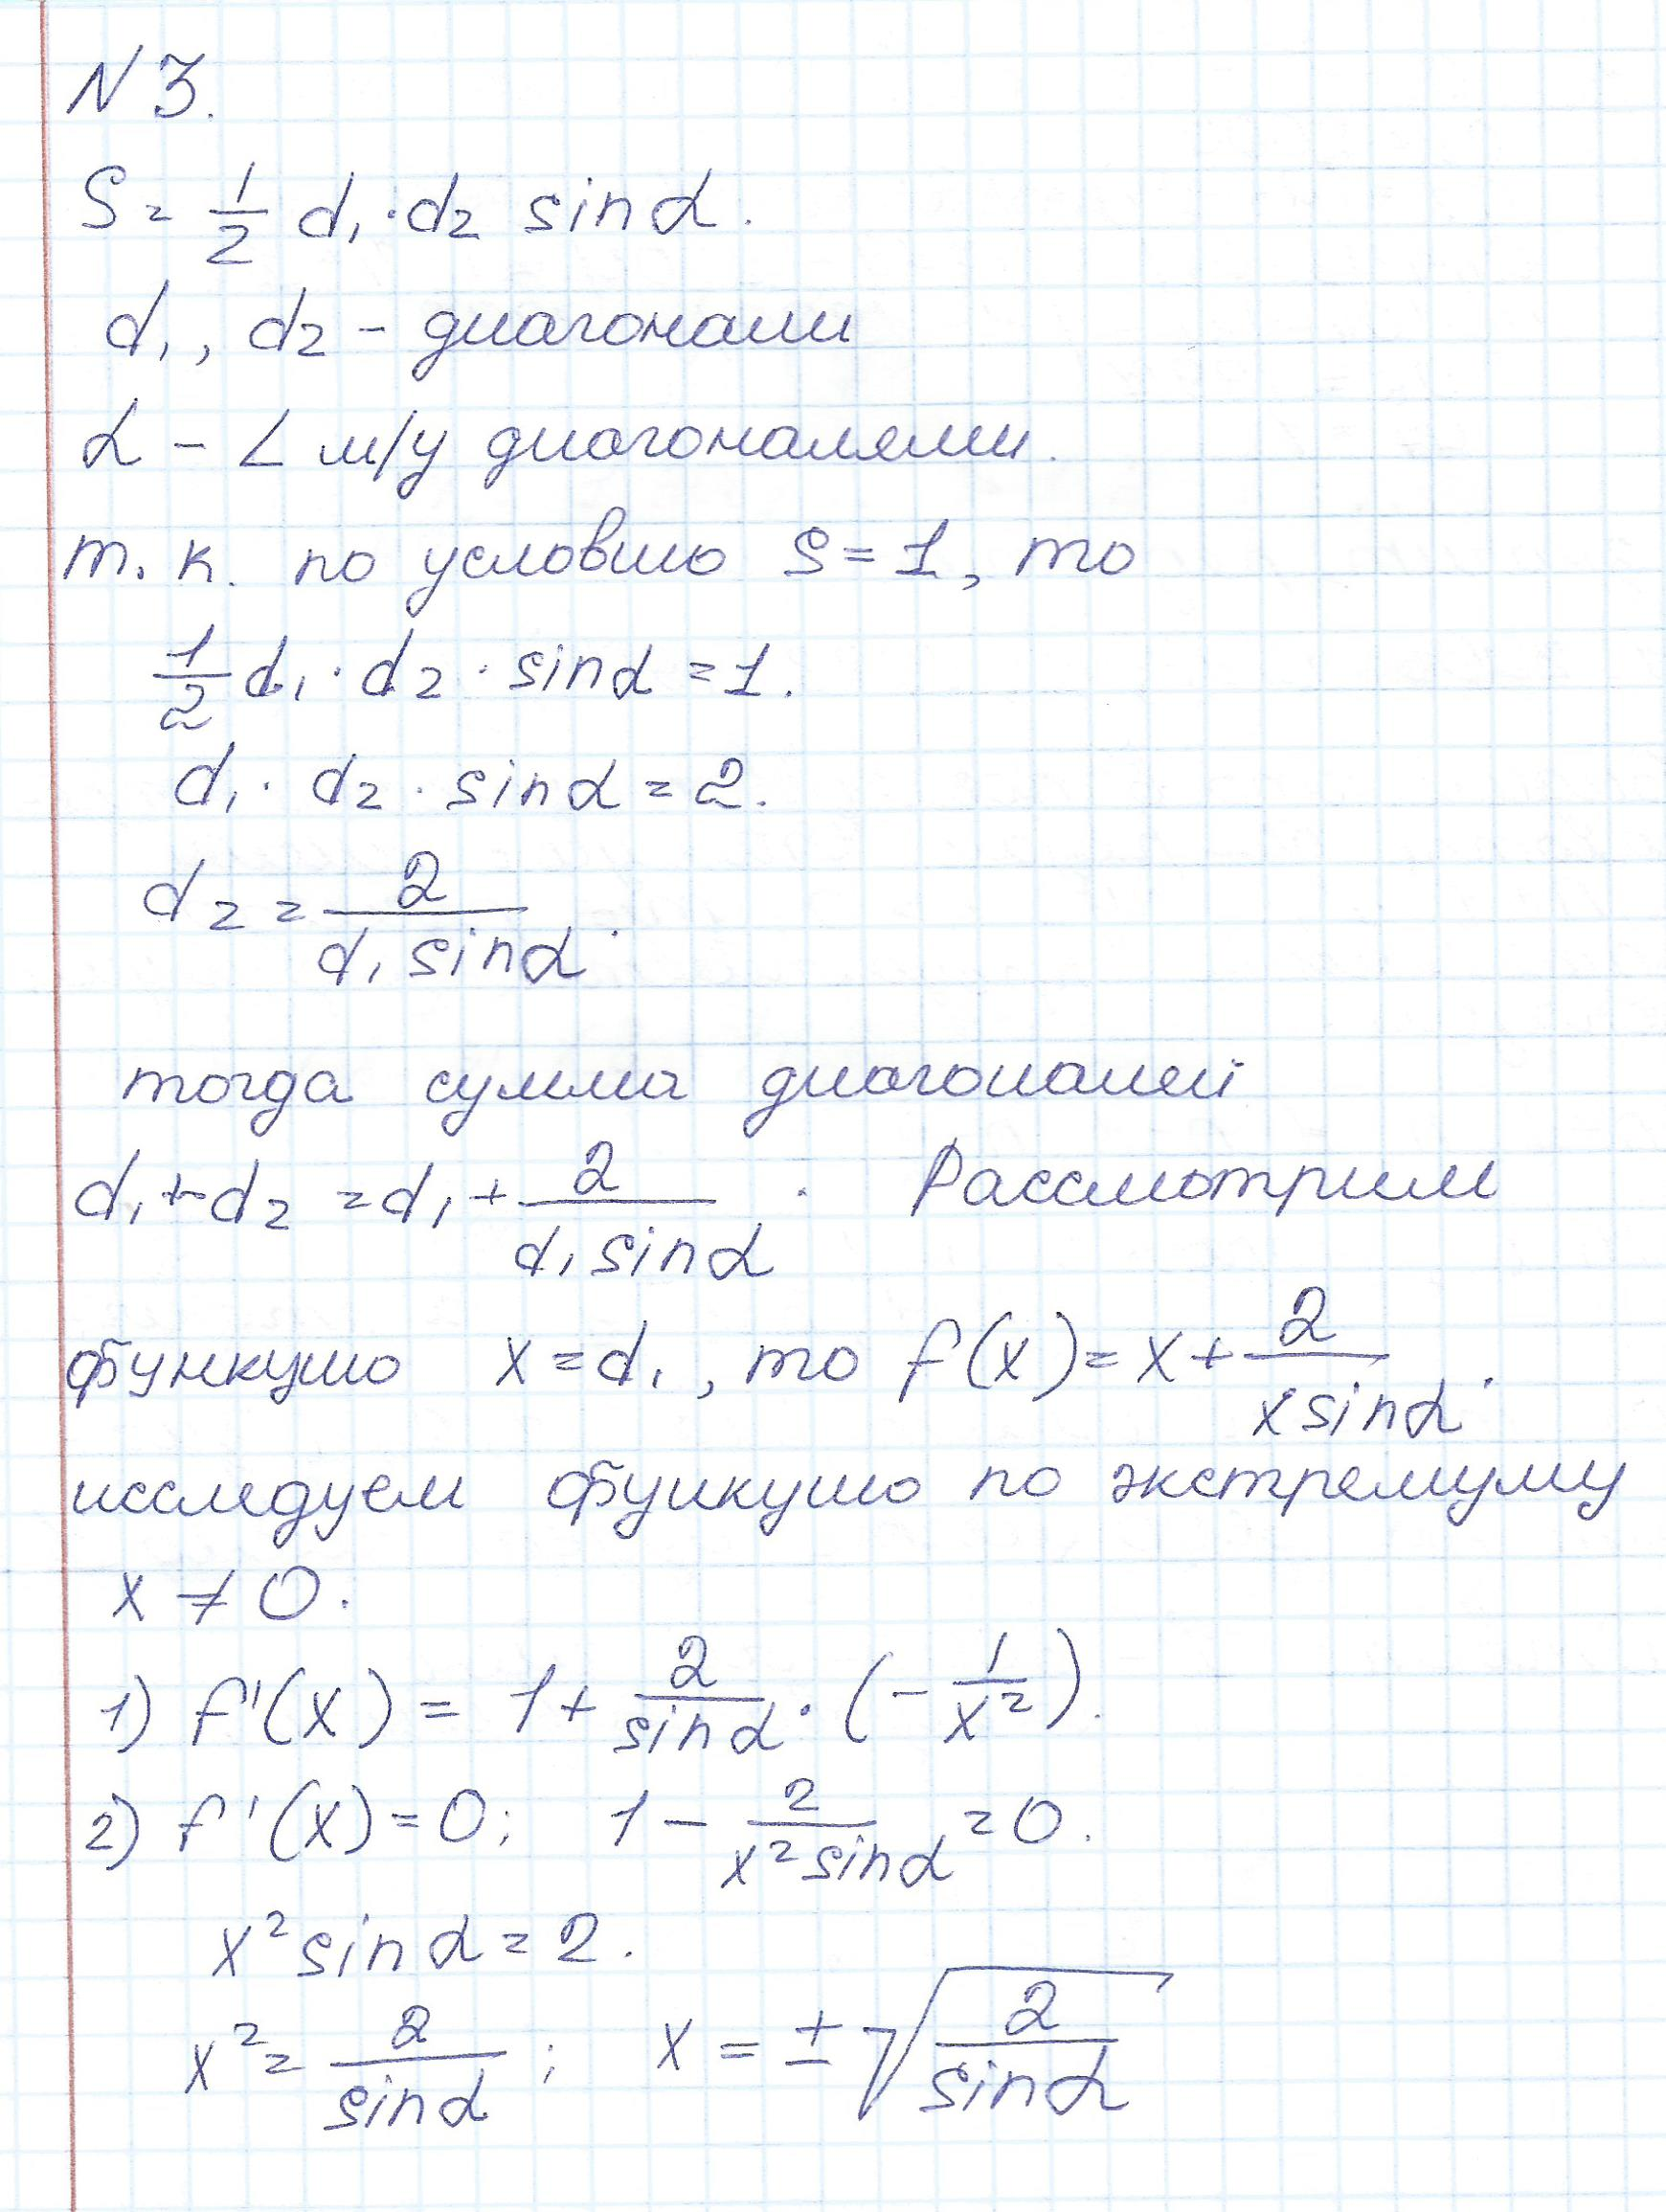 N 3.
S = 1/2 d₁·d₂ sinα.
d₁, d₂ - диагонали
α - ∠ м/у диагоналями.
т. к. по условию S = 1, то
1/2 d₁·d₂·sinα = 1.
d₁·d₂·sinα = 2.
d₂ = 2/(d₁ sinα).
тогда сумма диагоналей
d₁+d₂ = d₁ + 2/(d₁ sinα). Рассмотрим
функцию x = d₁, то f(x) = x + 2/(x sinα).
исследуем функцию по экстремуму
x ≠ 0.
1) f'(x) = 1 + 2/sinα · (-1/x²).
2) f'(x) = 0; 1 - 2/(x² sinα) = 0.
x² sinα = 2.
x² = 2/sinα; x = ±√(2/sinα)